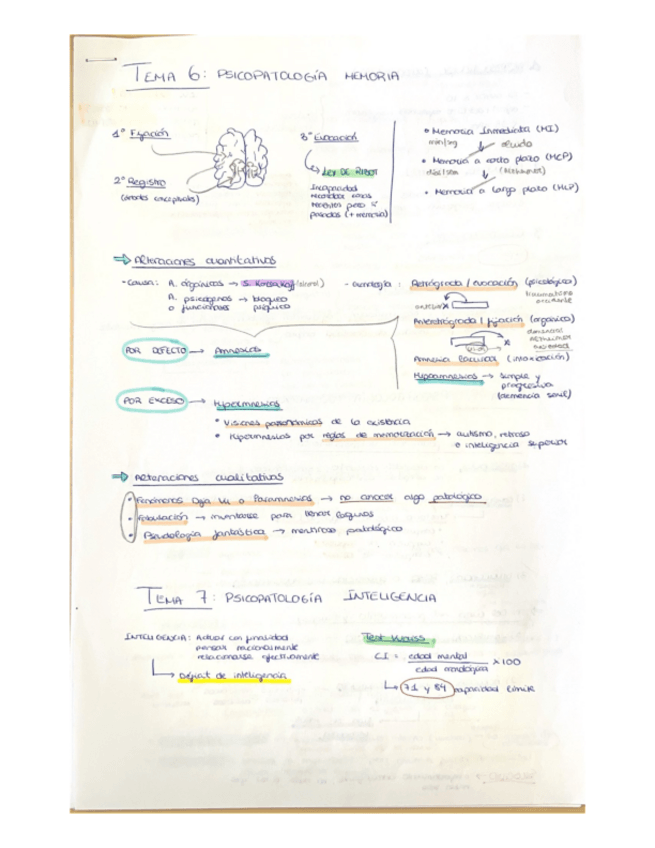 TEMA 6: PSICOPATOLOGÍA MEMORIA
1º Fijación
2º Registro
3º Evocación
LEY DE RIBOT
Incapacidad
recordar cosas
recientes pero sí
pasadas (+
• Memoria Inmediata (MI)
min/seg
• Memoria a corto plazo (MCP)
• Memoria a largo plazo (MLP)
⇒ Alteraciones cuantitativas
- Causa: A. orgánicos → S. Korsakoff
A. psicógenos → bloqueo
o funcionales psíquico
- Cronología: Retrógrada / evocación (psicológica)
traumatismo
accidente
Anterógrada / fijación (orgánico)
demencias
Amnesia lacunar (intoxicación)
Hipoamnesias → simple y
progresiva
(demencia senil)
POR DEFECTO → Amnesias
POR EXCESO → Hipermnesias
• Visiones panorámicas de la existencia
• Hipermnesias por reglas de memorización → autismo, retraso
o inteligencia superior
⇒ Alteraciones cualitativas
• Fenómenos Deja Vu o Paramnesias → no conocer algo patológico
• Fabulación → inventarse para llenar lagunas
• Pseudología fantástica → mentiroso patológico
TEMA 7: PSICOPATOLOGÍA INTELIGENCIA
INTELIGENCIA: Actuar con finalidad
pensar racionalmente
relacionarse efectivamente
Déficit de inteligencia
Test
CI = edad mental
edad cronológica × 100
71 y 84 capacidad límite